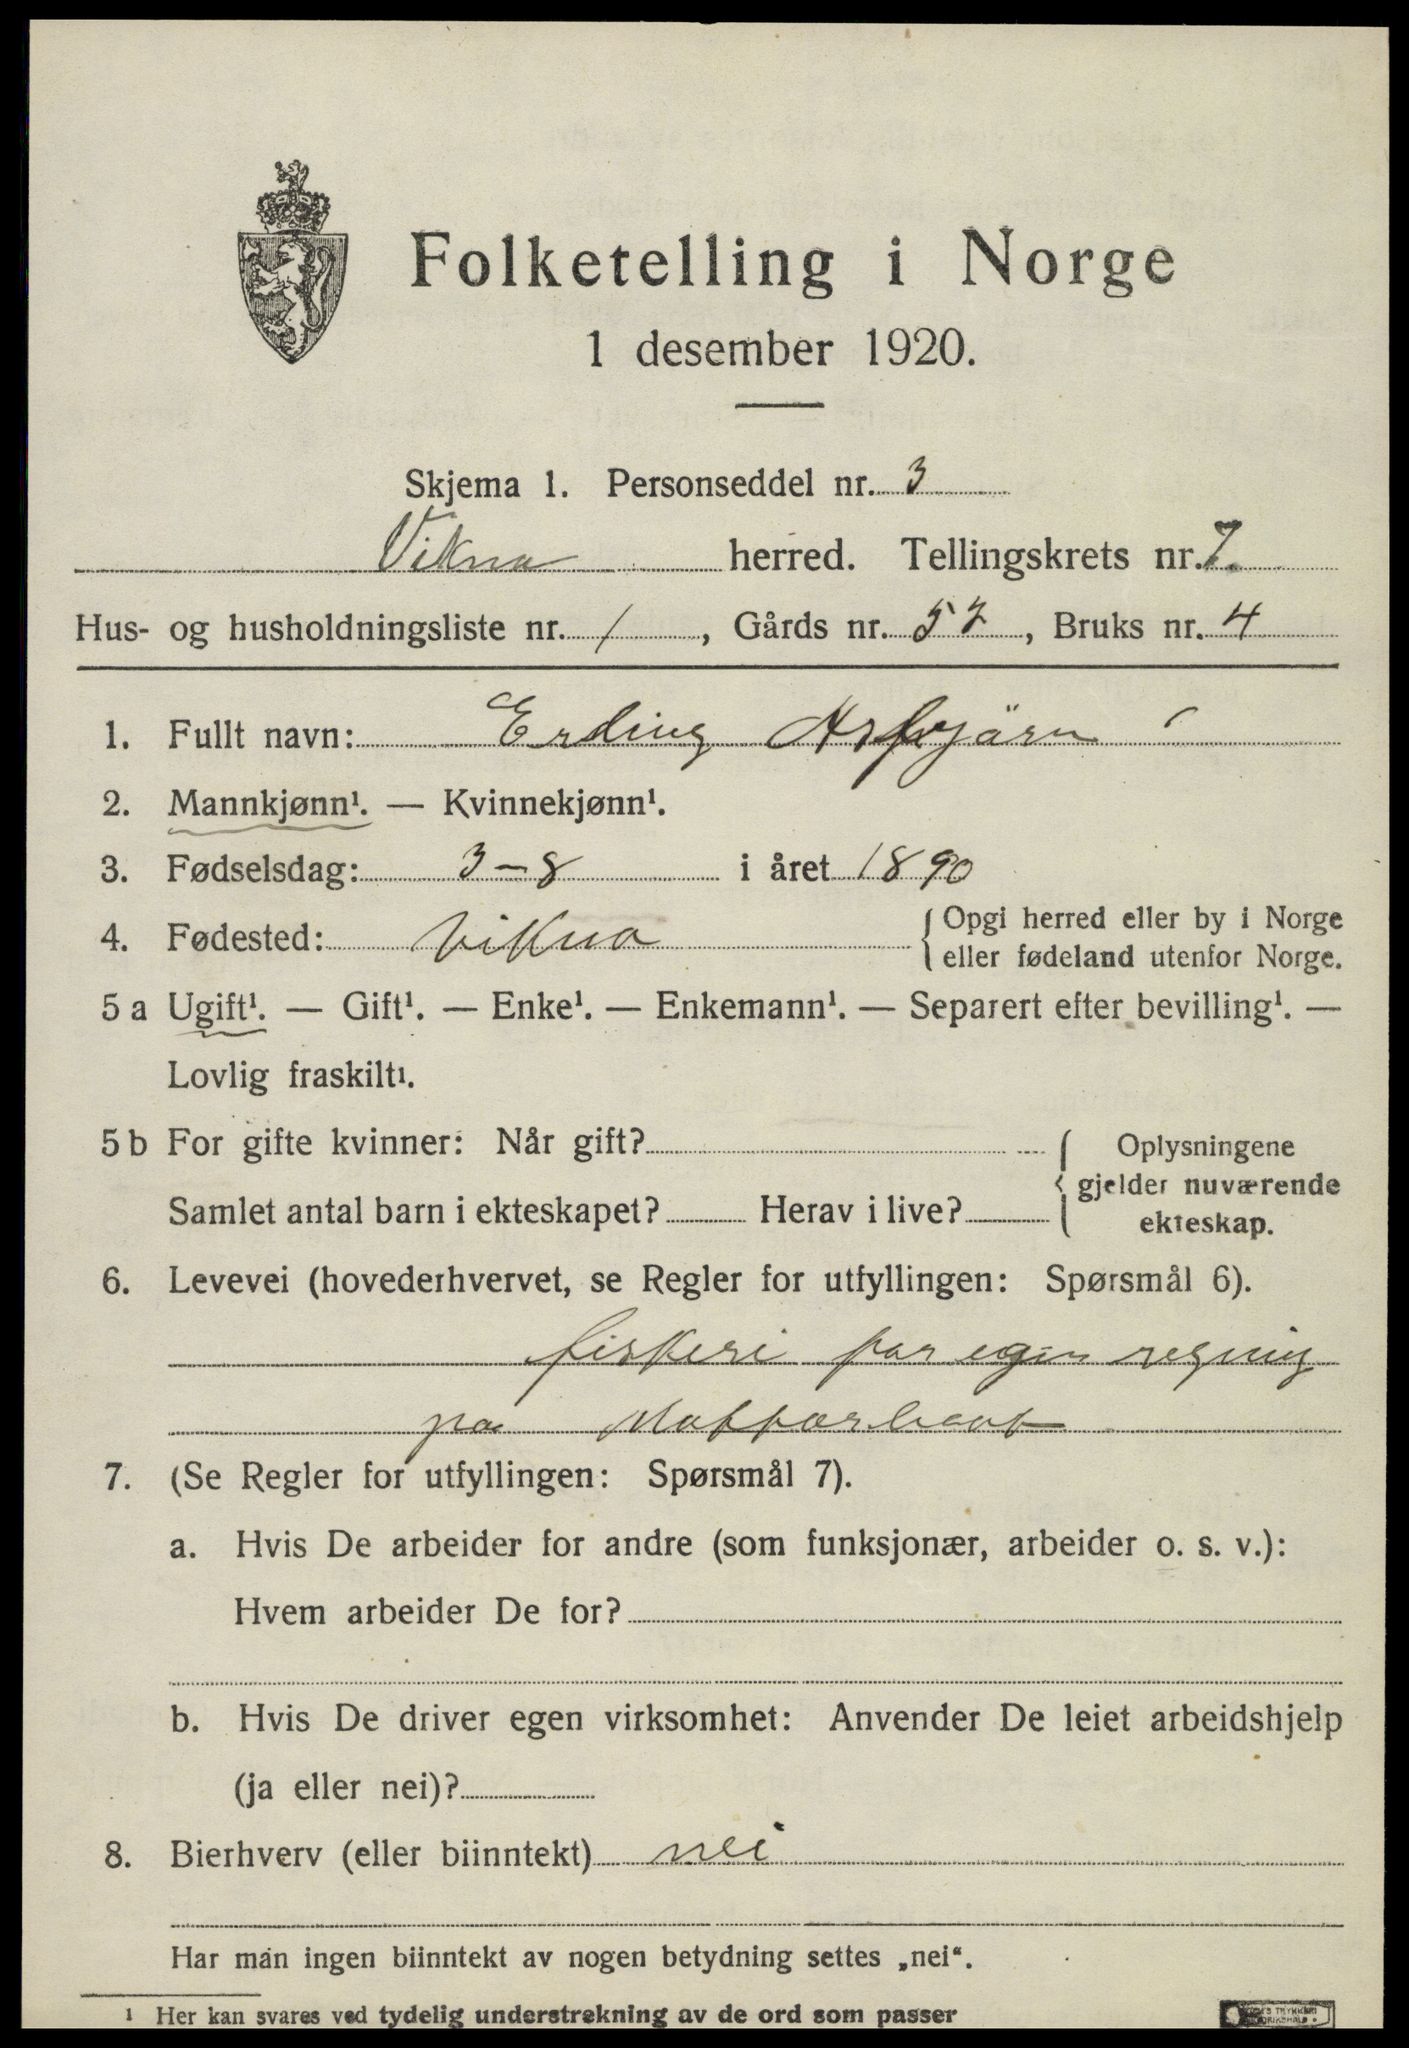 Folketelling i Norge
1 desember 1920.
Skjema 1. Personseddel nr. 3
Vikna herred. Tellingskrets nr. 7.
Hus- og husholdningsliste nr. 1, Gårds nr. 57, Bruks nr. 4
1. Fullt navn: Erling
2. Mannkjønn¹. — Kvinnekjønn¹.
3. Fødselsdag: 3-8 i året 1890
4. Fødested: Vikna { Opgi herred eller by i Norge
eller fødeland utenfor Norge.
5 a Ugift¹. — Gift¹. — Enke¹. — Enkemann¹. — Separert efter bevilling¹. —
Lovlig fraskilt¹.
5 b For gifte kvinner: Når gift? { Oplysningene
gjelder nuværende
Samlet antal barn i ekteskapet? Herav i live?
ekteskap.
6. Levevei (hovederhvervet, se Regler for utfyllingen: Spørsmål 6).
fiskeri par egen regning
pa Motforbaat
7. (Se Regler for utfyllingen: Spørsmål 7).
a. Hvis De arbeider for andre (som funksjonær, arbeider o. s. v.):
Hvem arbeider De for?
b. Hvis De driver egen virksomhet: Anvender De leiet arbeidshjelp
(ja eller nei)?
8. Bierhverv (eller biinntekt) nei
Har man ingen biinntekt av nogen betydning settes „nei“.
¹ Her kan svares ved tydelig understrekning av de ord som passer